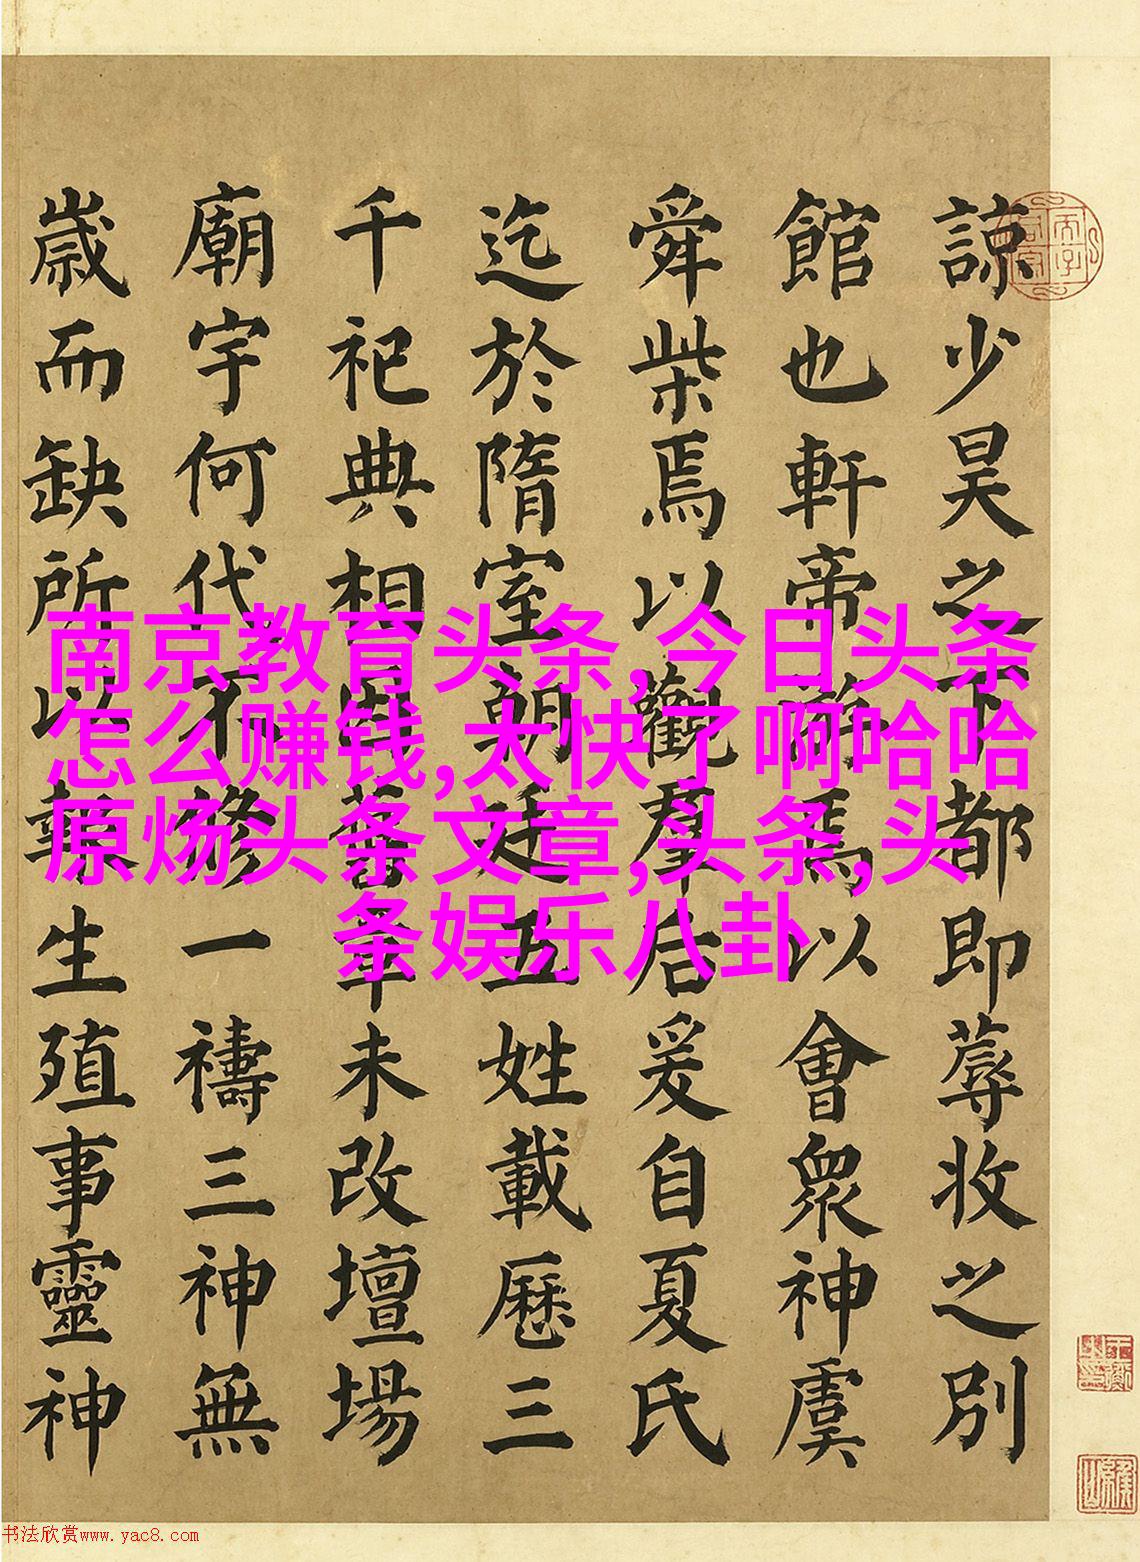 諒少昊之下都即蓐收之別
館也軒帝遊焉以會衆神虞
舜柴焉以觀羣后爰自夏氏
迄於隋室朝廷五姓載歷三
千祀典相舊章未改壇場
廟宇何代不修一禱三神無
歲而缺所以生殖事靈神
南京教育头条,今日头条
怎么赚钱,太快了啊哈哈
原炀头条文章,头条,头
条娱乐八卦
书法欣赏www.yac8.com